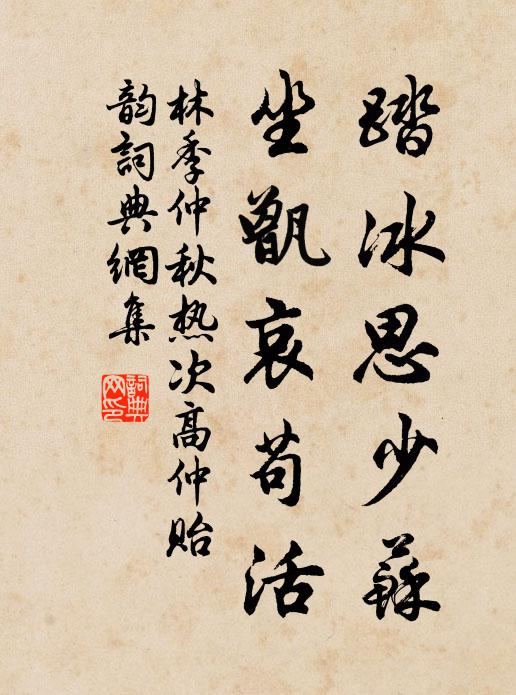 踏冰思少蘇
坐甑哀苟活
林季仲秋热次高仲貽
韵詞典網集
詞典网印